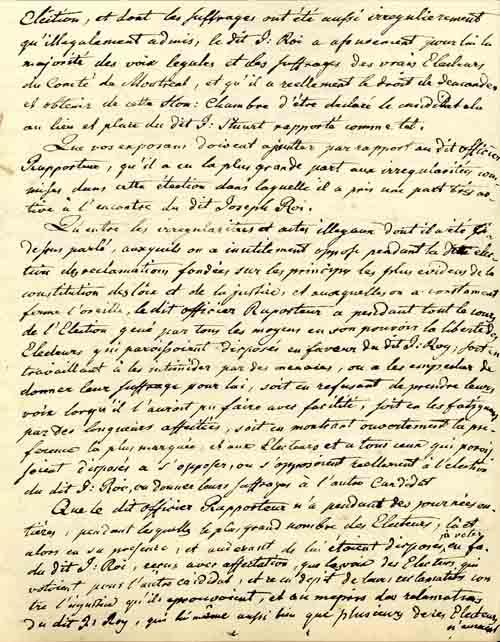 Election, et dont les suffrages ont été aussi irregulierement
qu'illegalement admis, le dit J: Roi a assurement pour lui la
majorité des voix legales et des suffrages des vrais Electeurs
du Comté de Montreal, et qu'il a reellement le droit de demander
et obtenir de cette Hon: Chambre d'être declaré le candidat elu
au lieu et place du dit J: Stuart rapporté comme tel.
Que vos exposans doivent ajouter par rapport au dit officier
Rapporteur, qu'il a eu la plus grande part aux irregularités com
mises dans cette élection dans laquelle il a pris une part très ac
tive à l'encontre du dit Joseph Roi.
Qu'outre les irregularités et actes illegaux dont il a été ci
dessus parlé, auxquels on a inutilement opposé pendant la dite elec
tion des reclamations fondées sur les principes les plus evidens de la
constitution des loix et de la justice, et auxquelles on a constament
fermé l'oreille, le dit officier Raporteur a pendant tout le cours
de l'Election gené par tous les moyens en son pouvoir la liberté des
Electeurs qui paroissoient disposés en faveur du dit J: Roy, soit en
travaillant à les intimider par des menaces, ou a les empecher de
donner leur suffrage pour lui, soit en refusant de prendre leurs
voix lorsqu'il l'auroit pu faire avec facilité, soit en les fatiguant
par des longueurs affectées, soit en montrant ouvertement la pre
ference la plus marquée, et aux Electeurs et a tous ceux qui parois
soient disposés a s'opposer, ou s'opposoient reellement à l'élection
du dit J: Roi, ou donner leurs suffrages à l'autre Candidat
Que le dit officier Rapporteur n'a pendant des journées en
tières, pendant lesquelles le plus grand nombre des Electeurs, là et
alors en sa presence, et auxenvirons de lui etoient disposés à voter en fa
du dit J: Roi, reçus avec affectation, que la voix des Electeurs qui
votoient pour l'autre candidat, et ce en depit de leurs exclamations con
tre l'injustice qu'ils eprouvoient, et au mepris des reclamations
du dit J: Roy, qui lui même aussi bien que plusieurs de ces Electeurs
n'auroient